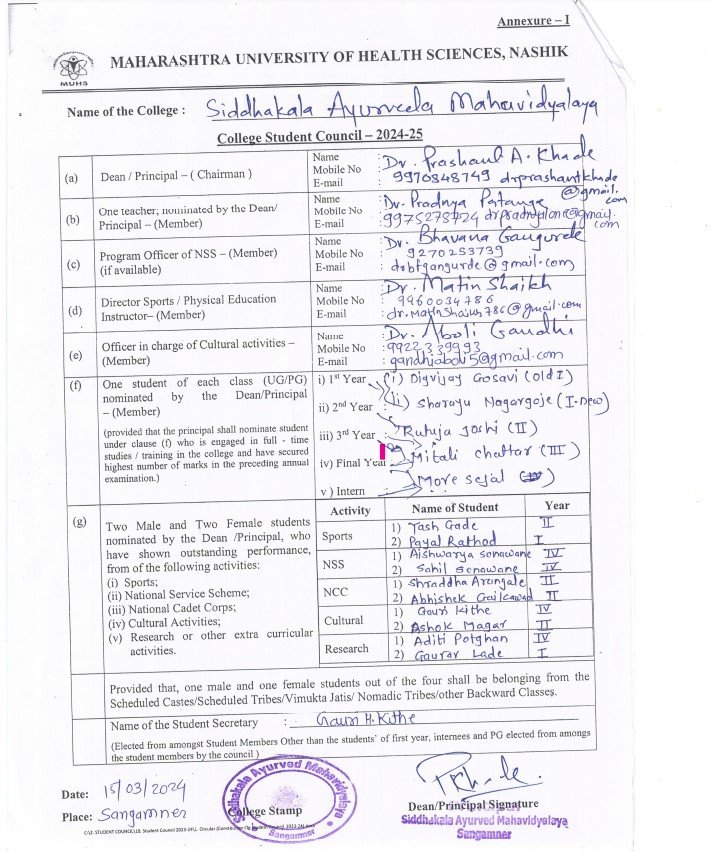 Annexure – I
MUHS
MAHARASHTRA UNIVERSITY OF HEALTH SCIENCES, NASHIK
Name of the College : Siddhakala Ayurveda Mahavidyalaya
College Student Council – 2024-25
(a) Dean / Principal – ( Chairman )
Name : Dr. Prashant A. Khade
Mobile No : 9970848749
E-mail drprashantkhade@gmail.com
(b) One teacher, nominated by the Dean/ Principal – (Member)
Name : Dr. Pradnya Potange
Mobile No
E-mail
(c) Program Officer of NSS – (Member) (if available)
Name : Dr. Bhavana Gangurde
Mobile No : 9270253739
E-mail : drbfgangurde@gmail.com
(d) Director Sports / Physical Education Instructor– (Member)
Name : Dr. Matin Shaikh
Mobile No : 9960034786
E-mail : dr.matinshaikh786@gmail.com
(e) Officer in charge of Cultural activities – (Member)
Name : Dr. Aboli Gandhi
Mobile No : 9922339993
E-mail : gandhiaboli5@gmail.com
(f) One student of each class (UG/PG) nominated by the Dean/Principal – (Member)
(provided that the principal shall nominate student under clause (f) who is engaged in full - time studies / training in the college and have secured highest number of marks in the preceding annual examination.)
i) 1st Year (i) Digvijay Gosavi (old I)
(ii) Sharayu Nagargoje (I-new)
ii) 2nd Year
Rutuja Joshi (II)
iii) 3rd Year :
Mitali Chattar (III)
iv) Final Year
More Sejal (IV)
v ) Intern
(g) Two Male and Two Female students nominated by the Dean /Principal, who have shown outstanding performance, from of the following activities:
(i) Sports;
(ii) National Service Scheme;
(iii) National Cadet Corps;
(iv) Cultural Activities;
(v) Research or other extra curricular activities.
Activity Name of Student Year
Sports 1) Tash Gade II
2) Payal Rathod I
NSS 1) Aishwarya Sonawane IV
2) Sahil Sonawane IV
NCC 1) Shraddha Arangale II
2) Abhishek Gaikawad II
Cultural 1) Gauri Kithe IV
2) Ashok Magar II
Research 1) Aditi Potghan IV
2) Gaurav Lade I
Provided that, one male and one female students out of the four shall be belonging from the Scheduled Castes/Scheduled Tribes/Vimukta Jatis/ Nomadic Tribes/other Backward Classes.
Name of the Student Secretary : Gauri H. Kithe
(Elected from amongst Student Members Other than the students' of first year, internees and PG elected from amongs the student members by the council )
Date: 15/03/2024
Place: Sangamner
Siddhakala Ayurved Mahavidyalaya
Sangamner
College Stamp
Dean/Principal Signature
Siddhakala Ayurved Mahavidyalaya
Sangamner